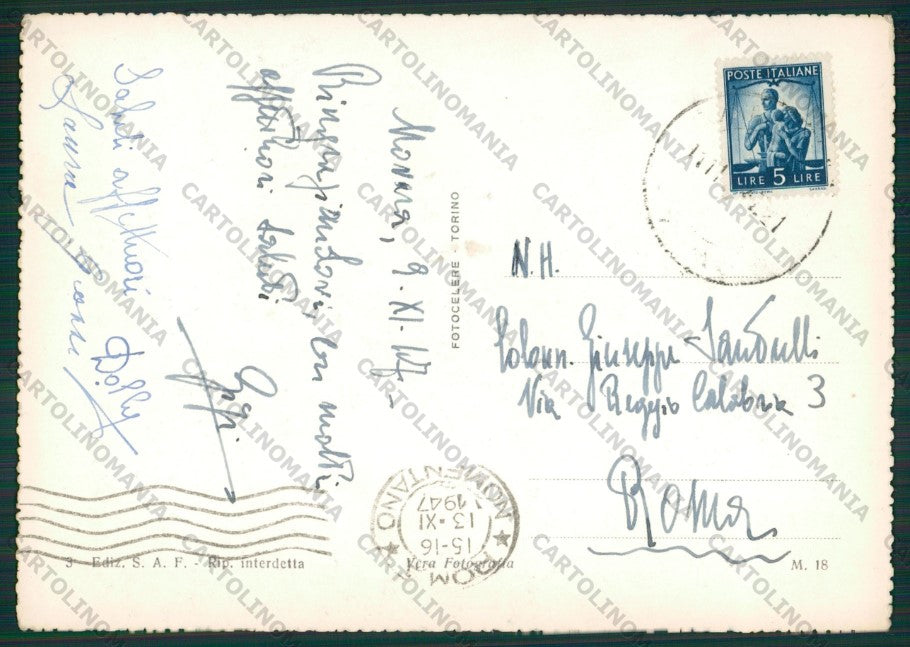 Monaco, 9-XI-47-
Ringraziandovi con molti
affettuosi saluti
Gigi.
Saluti affettuosi Dolly
Laura
FOTOCELERE - TORINO
POSTE ITALIANE
LIRE 5 LIRE
N.H.
Colonn. Giuseppe Sandulli
Via Reggio Calabria 3
Roma
ROMA NOMENTANO
15-16
13·XI
1947
3 - Ediz. S. A. F. - Rip. interdetta
Vera Fotografia
M. 18
CARTOLINOMANIA